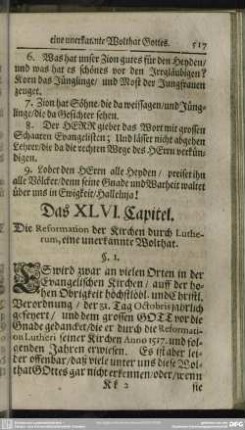 eine unerkannte Wolthat Gottes. 517
6. Was hat unser Zion gutes für den Heyden/
und was hat es schönes vor den Irrgläubigen?
Korn das Jünglinge/ und Most der Jungfrauen
zeuget.
7. Zion hat Söhne/die da weissagen/und Jüng-
linge/die da Gesichter sehen.
8. Der HERR giebet das Wort mit grossen
Schaaren Evangelisten; Und lässet nicht abgehen
Lehrer/die da die rechten Wege des HErrn verkün-
digen.
9. Lobet den HErrn alle Heyden/ preiset ihn
alle Völcker/denn seine Gnade und Warheit waltet
über uns in Ewigkeit/Halleluja!
Das XLVI. Capitel.
Die Reformation der Kirchen durch Luthe-
rum, eine unerkannte Wolthat.
§. 1.
ES wird zwar an vielen Orten in der
Evangelischen Kirchen/ auff der ho-
hen Obrigkeit höchstlöbl. und Christl.
Verordnung/ der 31. Tag Octobris jährlich
gefeyert/ und dem grossen GOTT vor die
Gnade gedancket/die er durch die Reformati-
on Lutheri seiner Kirchen Anno 1517. und fol-
genden Jahren erwiesen. Es ist aber lei-
der offenbar/daß viele unter uns diese Wol-
that Gottes gar nicht erkennen/oder/wenn
Kk 2 sie